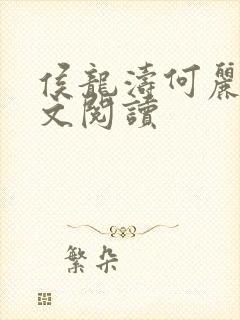 侯龍濤何麗
文閱讀
繁朵